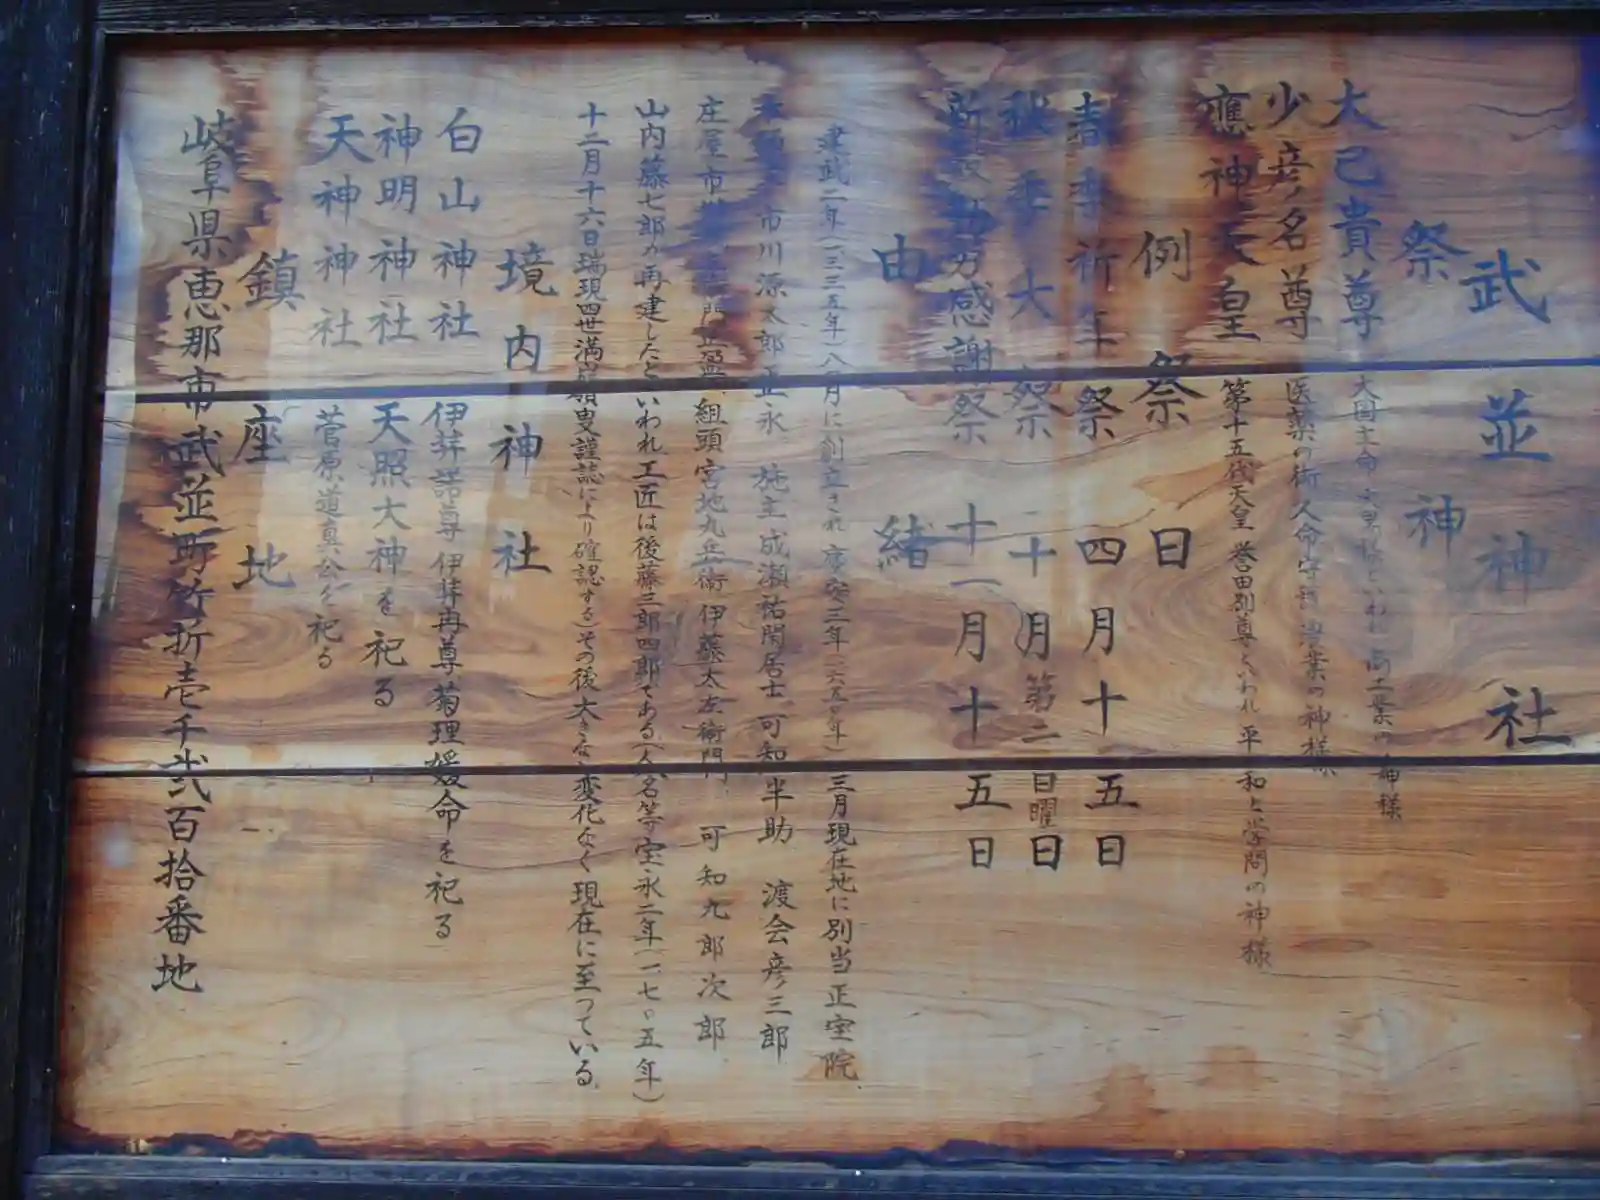 武並神社
祭神
大己貴尊 大国主命 といわれ商工業の神様
少彦名尊 医薬の術人命守護治業の神様
應神天皇 第十五代天皇 誉田別尊といわれ 平和と学問の神様
例祭日
春季祈年祭 四月十五日
秋季大祭 十月第二日曜日
新穀 感謝祭 十一月十五日
由緒
建武二年(一三三五年)八月に創立され慶安三年(一六五〇年)三月現在地に別当正宝院
市川源太郎正永 施主 成瀬祐閑居士 可知半助 渡会彦三郎
庄屋市 門正盈 組頭宮地九兵衛 伊藤太左衛門 可知九郎次郎
山内藤七郎が再建したといわれ工匠は後藤三郎四郎である(人名等宝永二年(一七〇五年)
十二月十六日瑞現四世満嶺叟謹誌により確認する)その後大きな変化なく現在に至っている
境内神社
白山神社 伊弉諾尊 伊弉冉尊 菊理媛命を祀る
神明神社 天照大神を祀る
天神神社 菅原道真公を祀る
鎮座地
岐阜県恵那市武並町竹折壱千弐百拾番地